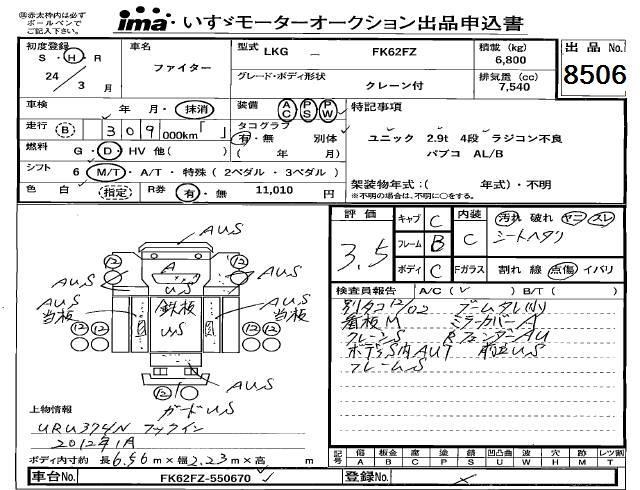 ㊟赤太枠内は必ず
ボールペンで
ご記入下さい。
ima いすゞモーターオークション出品申込書
初度登録
S・H・R
24
3 月
車名
ファイター
型式 LKG ー FK62FZ
グレード・ボディ形状
クレーン付
積載 (kg)
6,800
排気量 (cc)
7,540
出品 No.
8506
車検 年 月・抹消
走行 (B) 309 000km「 」
燃料 G・D・HV 他( )
シフト 6 M/T・A/T・特殊(2ペダル・3ペダル)
色 白 (指定) R券 有・無 11,010 円
装備 AC PS PW
タコグラフ
有・無 別体
( 年 月)
特記事項
ユニック 2.9t 4段 ラジコン不良
パブコ AL/B
架装物年式:( 年式)・不明
※不明の場合は、不明に○をする。
評価
3.5
キャブ C
フレーム B
ボディ C
内装 C
汚れ 破れ ヤニ スレ
シートヘタリ
Fガラス 割れ 線 点傷 イバリ
検査員報告 A/C(✓) B/T( )
別タコ12/02 ブームタレ(小)
看板M ミラーカバーA
クレーンS
フレームS
AUS
AUS
AUS
AUS
当板
AUS
当板
A
US
鉄板
US
AUS
ガードUS
12
12
12
12
12
上物情報
URU374N フックイン
2012年1月
ボディ内寸約 長 6.56 m×幅 2.23 m×高 m
記号 傷 A 板金 B 腐 C 塗 P 錆 S 凹凸曲 U 波 W 穴 H 無 M レッ割 T
車台No. FK62FZ-550670
登録No.